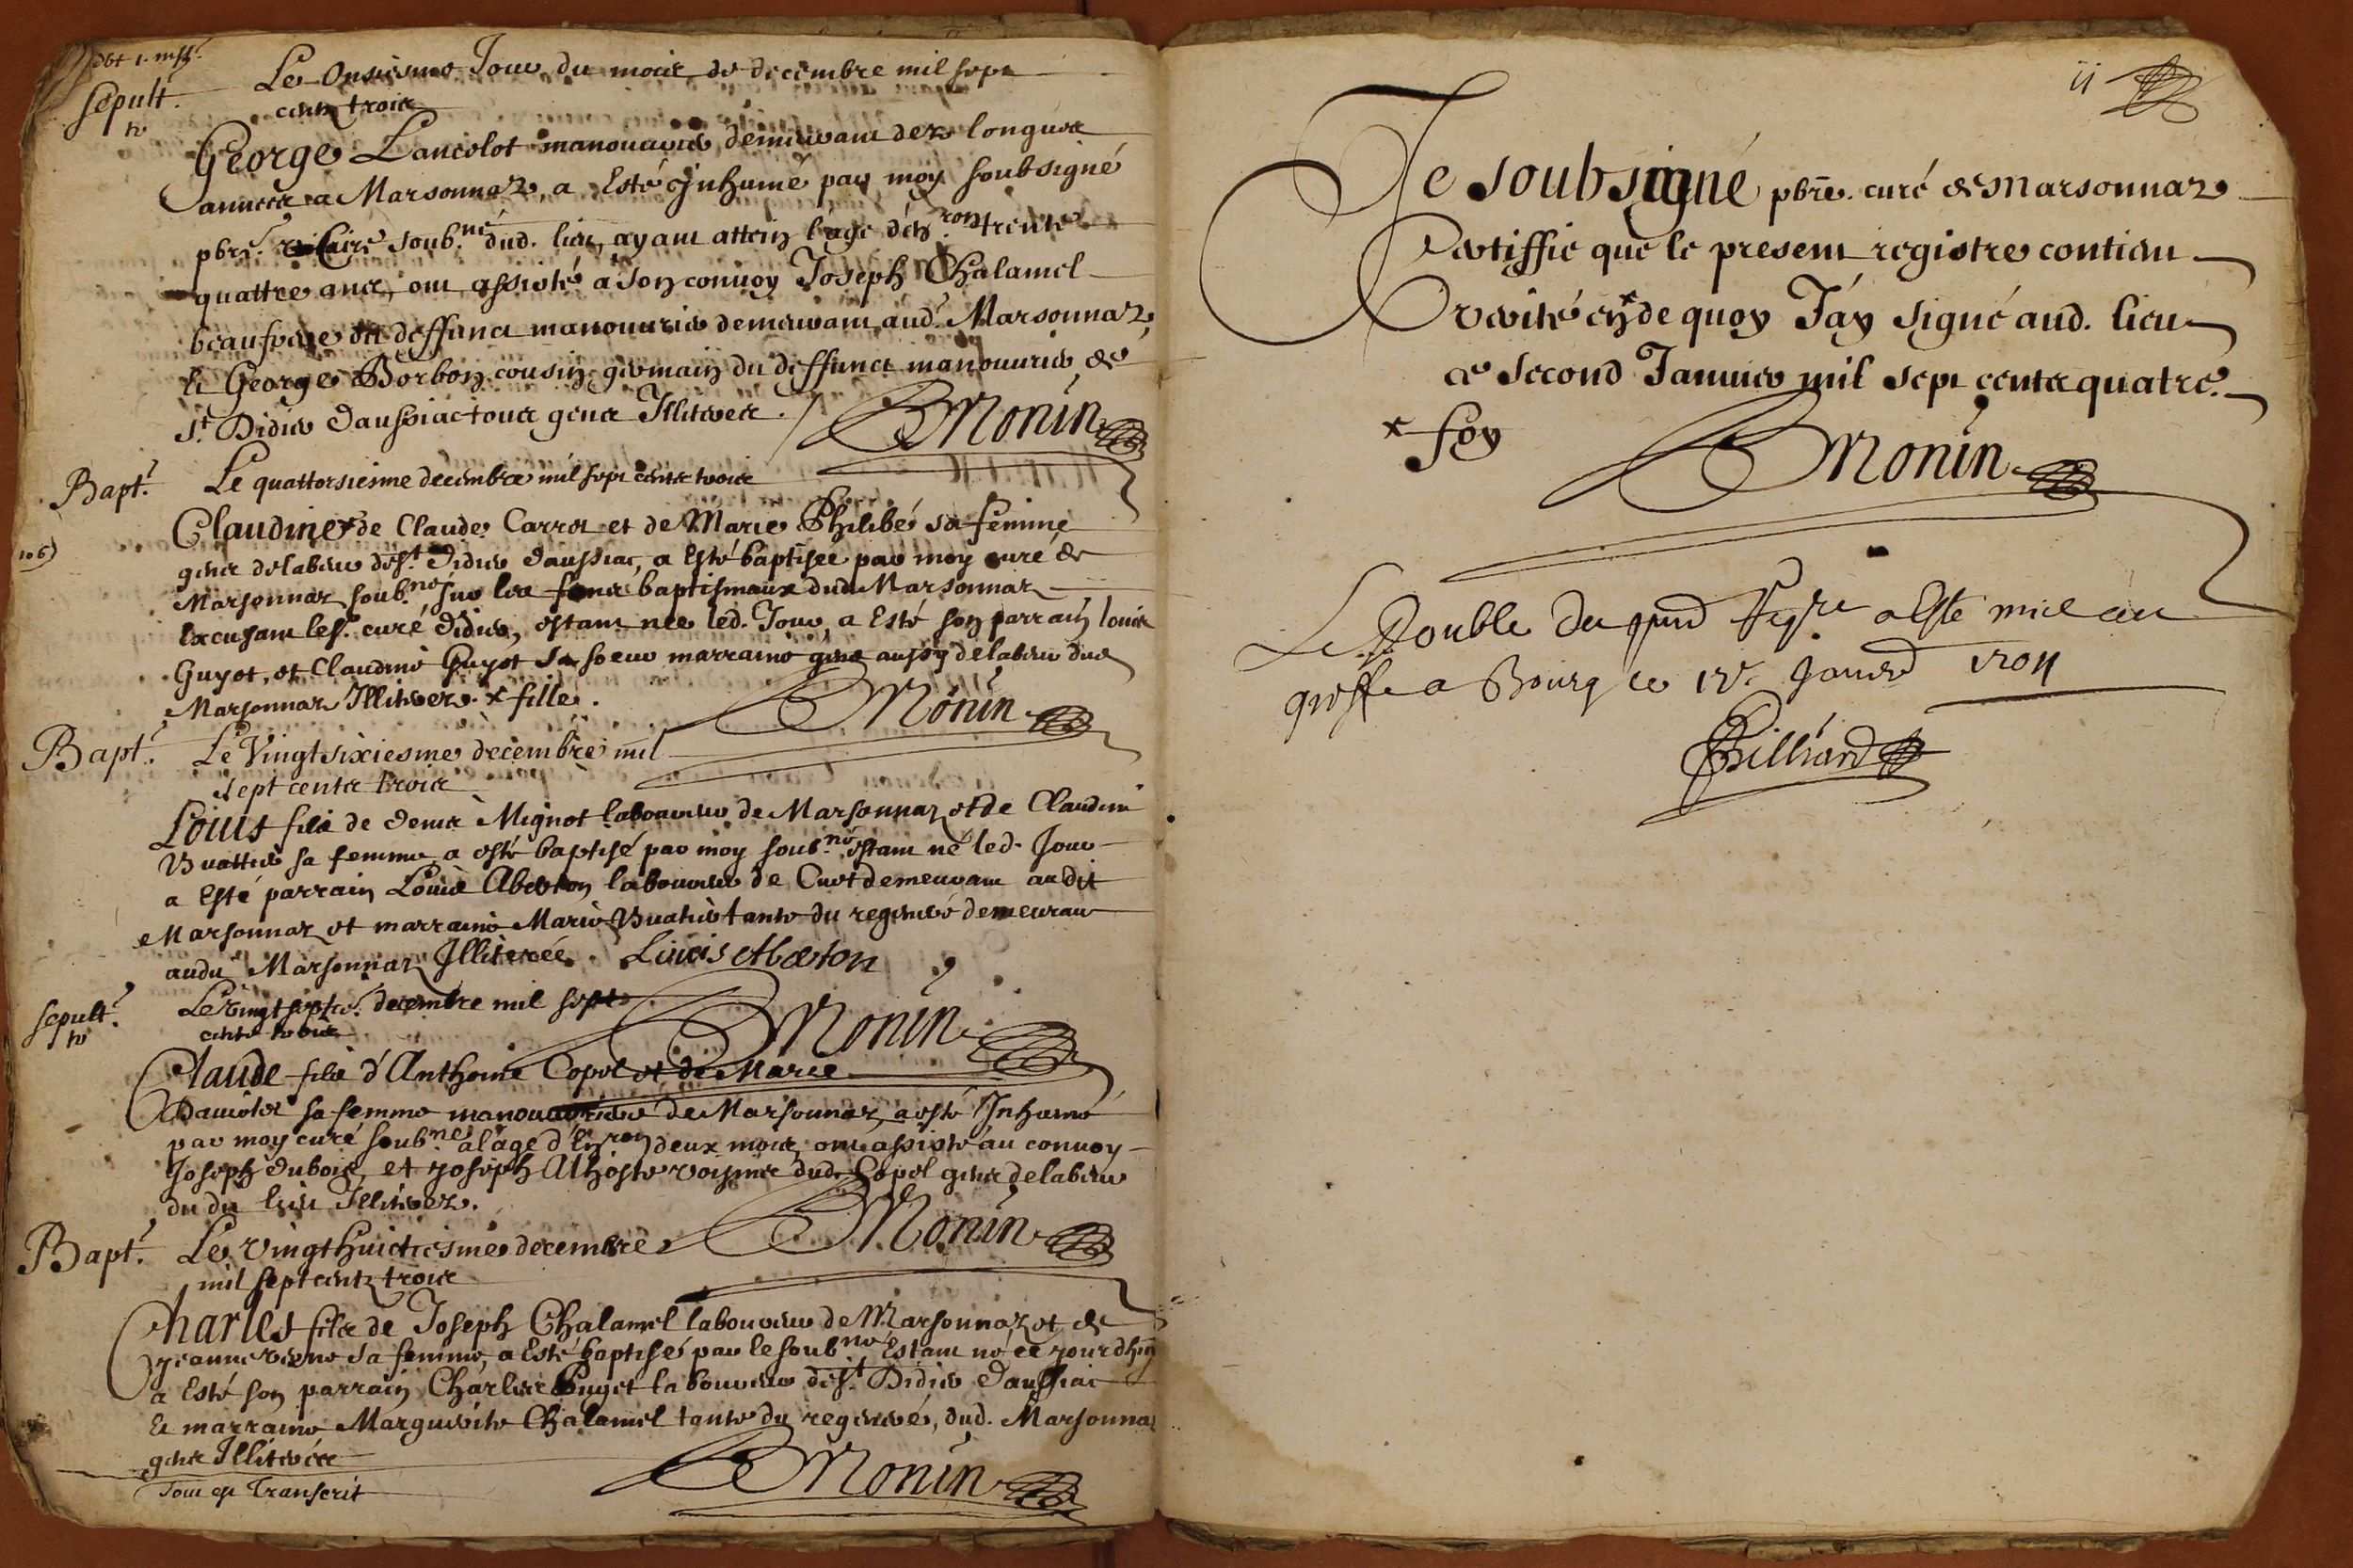 Sepult.re
Le Onziesme Jour du mois de decembre mil sept
cents trois
George Lancelot manouvrier demeurant dez longues
annees a Marsonnaz, a Esté Inhumé par moy soubsigné
pbre. soub.né dud. lieu, ayant attein l'age d'en.ron trente
quattre ans, ont assisté a son convoy Joseph Chalamel
beaufrere du deffunct manouvrier demeurant aud. Marsonnaz,
et George Borbon cousin germain du deffunct manouvrier de
St. Didier d'aussiac tous gens Illiteres.
Monin
Bapt.
Le quattorsiesme decembre mil sept cents trois
Claudine* de Claude Carroz et de Marie Philibé sa femme
gens de labeur de St. Didier d'aussiac, a Esté baptisée par moy curé de
Marsonnaz soub.né sur les fons baptismaux dud. Marsonnaz
Excusant le Sr. curé Didier, estant née led. Jour, a Esté son parrain Louis
Guyot, et Claudine Guyot sa soeur marraine gens aussy de labeur dud.
Marsonnaz Illiterez. * fille.
Monin
Bapt.
Le Vingt sixiesme decembre mil
sept cents trois
Louis fils de Denis Mignot laboureur de Marsonnaz et de Claudine
Vuattier sa femme, a esté baptisé par moy soub.né estant né led. Jour
a Esté parrain Louis Aberton laboureur de Curt demeurant audit
Marsonnaz et marraine Marie Vuatier tante du regeneré demeurant
audit Marsonnaz Illiterée. Louis Aberton
Monin
Sepult.re
Le Vingt septie. decembre mil sept
cents trois
Claude fils d'Anthoine Copel et de Marie
sa femme manouvriers de Marsonnaz, a esté Inhumé
par moy curé soub.né a l'age d'en.ron deux mois, ont assisté au convoy
Joseph Dubois, et Joseph Alhoste voisins dud. Copel gens de labeur
du dit lieu Illiterez.
Monin
Bapt.
Le Vingt huictiesme decembre
mil sept cents trois
Charles fils de Joseph Chalamel laboureur de Marsonnaz et de
Jeanne sa femme, a Esté baptisé par le soub.né Estant né ce jourdhuy
a Esté son parrain Charles Puget laboureur de St. Didier d'aussiac
Et marraine Marguerite Chalamel tante du regeneré, dud. Marsonnaz
gens Illiterés
Monin
Tout est Transcrit
ii
Je soubsigné pbre. curé de Marsonnaz
Certiffie que le present registre contient
verité en* de quoy J'ay signé aud. lieu
ce second Janvier mil sept cents quatre.
* foy
Monin
Le Double du pnt Regre a Esté mis au
greffe a Bourg ce 12e Janvr 1704
Billiard